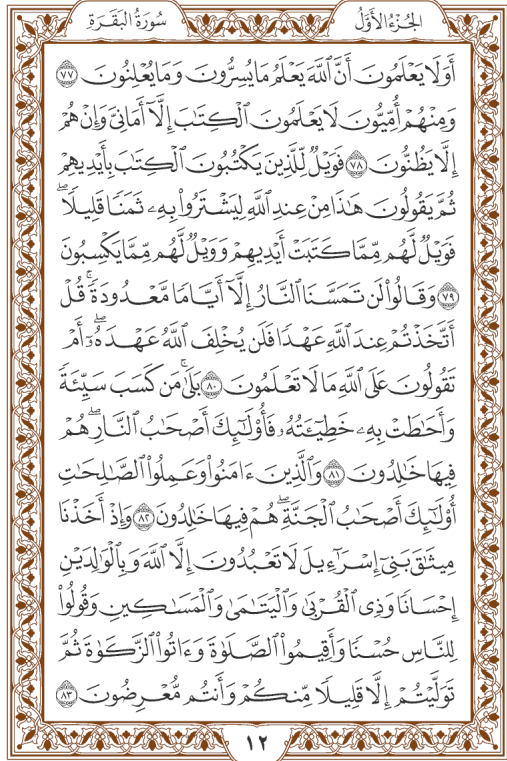 الجزء الأول
سورة البقرة
أَوَلَا يَعْلَمُونَ أَنَّ ٱللَّهَ يَعْلَمُ مَا يُسِرُّونَ وَمَا يُعْلِنُونَ ٧٧
وَمِنْهُمْ أُمِّيُّونَ لَا يَعْلَمُونَ ٱلْكِتَٰبَ إِلَّآ أَمَانِىَّ وَإِنْ هُمْ
إِلَّا يَظُنُّونَ ٧٨ فَوَيْلٌ لِّلَّذِينَ يَكْتُبُونَ ٱلْكِتَٰبَ بِأَيْدِيهِمْ
ثُمَّ يَقُولُونَ هَٰذَا مِنْ عِندِ ٱللَّهِ لِيَشْتَرُوا۟ بِهِۦ ثَمَنًا قَلِيلًا ۖ
فَوَيْلٌ لَّهُم مِّمَّا كَتَبَتْ أَيْدِيهِمْ وَوَيْلٌ لَّهُم مِّمَّا يَكْسِبُونَ
٧٩ وَقَالُوا۟ لَن تَمَسَّنَا ٱلنَّارُ إِلَّآ أَيَّامًا مَّعْدُودَةً ۚ قُلْ
أَتَّخَذْتُمْ عِندَ ٱللَّهِ عَهْدًا فَلَن يُخْلِفَ ٱللَّهُ عَهْدَهُۥٓ ۖ أَمْ
تَقُولُونَ عَلَى ٱللَّهِ مَا لَا تَعْلَمُونَ ٨٠ بَلَىٰ ۚ مَن كَسَبَ سَيِّئَةً
وَأَحَٰطَتْ بِهِۦ خَطِيٓـَٔتُهُۥ فَأُو۟لَٰٓئِكَ أَصْحَٰبُ ٱلنَّارِ ۖ هُمْ
فِيهَا خَٰلِدُونَ ٨١ وَٱلَّذِينَ ءَامَنُوا۟ وَعَمِلُوا۟ ٱلصَّٰلِحَٰتِ
أُو۟لَٰٓئِكَ أَصْحَٰبُ ٱلْجَنَّةِ ۖ هُمْ فِيهَا خَٰلِدُونَ ٨٢ وَإِذْ أَخَذْنَا
مِيثَٰقَ بَنِىٓ إِسْرَٰٓءِيلَ لَا تَعْبُدُونَ إِلَّا ٱللَّهَ وَبِٱلْوَٰلِدَيْنِ
إِحْسَانًا وَذِى ٱلْقُرْبَىٰ وَٱلْيَتَٰمَىٰ وَٱلْمَسَٰكِينِ وَقُولُوا۟
لِلنَّاسِ حُسْنًا وَأَقِيمُوا۟ ٱلصَّلَوٰةَ وَءَاتُوا۟ ٱلزَّكَوٰةَ ثُمَّ
تَوَلَّيْتُمْ إِلَّا قَلِيلًا مِّنكُمْ وَأَنتُم مُّعْرِضُونَ ٨٣
١٢